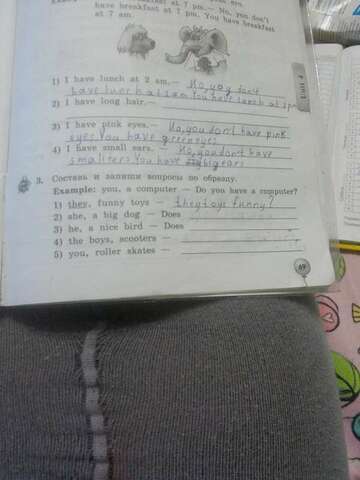 at 7 pm.— No, you don't
have breakfast at 1 pm. You have breakfast
at 7 am.
1) I have lunch at 2 am.— No, you don't
have lunch at 2 am You have lunch at
2) I have long hair.—
3) I have pink eyes.— No, you don't have pink
eyes You have green eyes
4) I have small ears. — No, you don't have
small ears you have big ears
3. Составь и запиши вопросы по образцу.
Example: you, a computer — Do you have a computer?
1) they, funny toys — they toys funny?
2) she, a big dog — Does
3) he, a nice bird — Does
4) the boys, scooters —
5) you, roller skates —
69